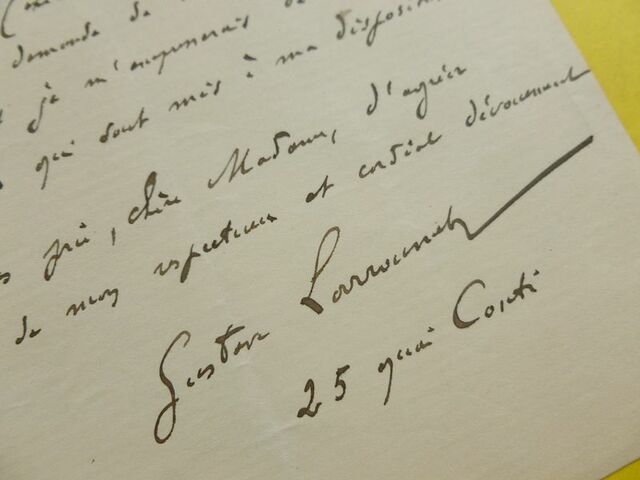 demande de
je m'emposerais de
qui sont mis à ma disposit
prie, chère Madame, d'agréer
de mon respectueux et cordial dévouement
Gustave Larroumet
25 quai Conti